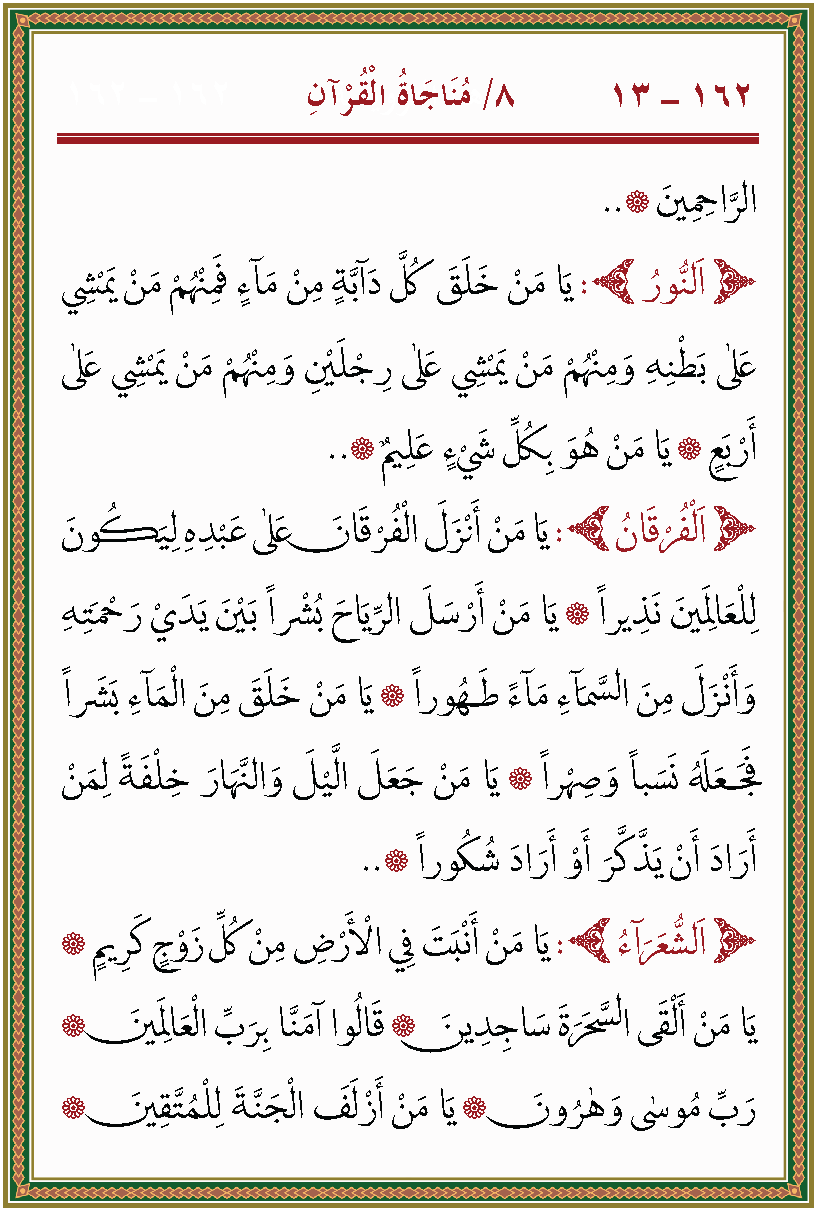 ١٦٢ ــ ١٣ ٨/ مُنَاجَاةُ الْقُرْآنِ
الرَّاحِمِينَ ۞..
﴿ اَلنُّورُ ﴾: يَا مَنْ خَلَقَ كُلَّ دَآبَّةٍ مِنْ مَآءٍ فَمِنْهُمْ مَنْ يَمْشِي
عَلٰى بَطْنِهِ وَمِنْهُمْ مَنْ يَمْشِي عَلٰى رِجْلَيْنِ وَمِنْهُمْ مَنْ يَمْشِي عَلٰى
أَرْبَعٍ ۞ يَا مَنْ هُوَ بِكُلِّ شَيْءٍ عَلِيمٌ ۞..
﴿ اَلْفُرْقَانُ ﴾: يَا مَنْ أَنْزَلَ الْفُرْقَانَ عَلٰى عَبْدِهِ لِيَكُونَ
لِلْعَالَمِينَ نَذِيراً ۞ يَا مَنْ أَرْسَلَ الرِّيَاحَ بُشْراً بَيْنَ يَدَيْ رَحْمَتِهِ
وَأَنْزَلَ مِنَ السَّمَآءِ مَآءً طَهُوراً ۞ يَا مَنْ خَلَقَ مِنَ الْمَآءِ بَشَراً
فَجَعَلَهُ نَسَباً وَصِهْراً ۞ يَا مَنْ جَعَلَ الَّيْلَ وَالنَّهَارَ خِلْفَةً لِمَنْ
أَرَادَ أَنْ يَذَّكَّرَ أَوْ أَرَادَ شُكُوراً ۞..
﴿ اَلشُّعَرَآءُ ﴾: يَا مَنْ أَنْبَتَ فِي الْأَرْضِ مِنْ كُلِّ زَوْجٍ كَرِيمٍ ۞
يَا مَنْ أَلْقَى السَّحَرَةَ سَاجِدِينَ ۞ قَالُوا آمَنَّا بِرَبِّ الْعَالَمِينَ ۞
رَبِّ مُوسٰى وَهٰرُونَ ۞ يَا مَنْ أَزْلَفَ الْجَنَّةَ لِلْمُتَّقِينَ ۞